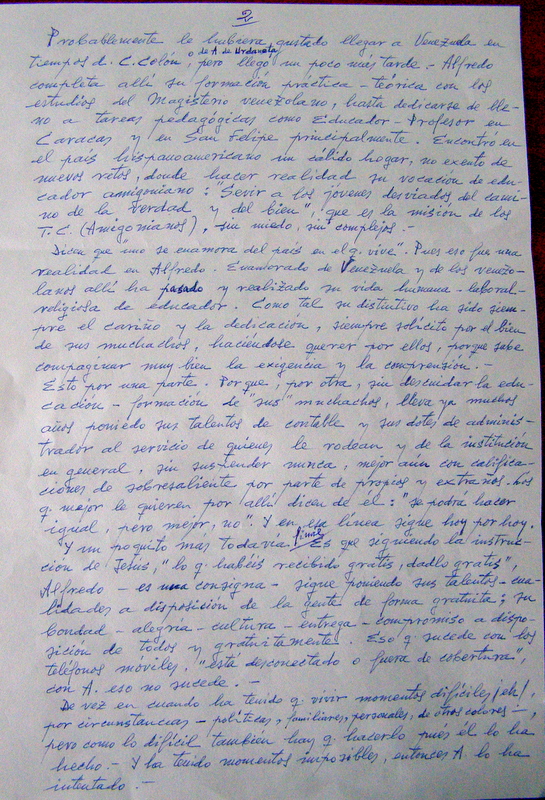 2
Probablemente le hubiera gustado llegar a Venezuela en
tiempos d. C. Colón, o de A. de Urdaneta, pero llegó un poco más tarde.- Alfredo
completa allí su formación práctica - teórica con los
estudios del Magisterio venezolano, hasta dedicarse de lle-
no a tareas pedagógicas como Educador - Profesor en
Caracas y en San Felipe principalmente. Encontró en
el país hispanoamericano un cálido hogar, no exento de
nuevos retos, donde hacer realidad su vocación de edu-
cador amigoniano: "Sevir a los jóvenes desviados del cami-
no de la verdad y del bien", que es la misión de los
T.C. (Amigonianos), sin miedo, sin complejos.-
Dicen que "uno se enamora del país en el q. vive". Pues eso fue una
realidad en Alfredo. Enamorado de Venezuela y de los venezo-
lanos allí ha pasado y realizado su vida humana - laboral-
religiosa de educador. Como tal su distintivo ha sido siem-
pre el cariño y la dedicación, siempre solícito por el bien
de sus muchachos, haciéndose querer por ellos, porque sabe
compaginar muy bien la exigencia y la comprensión.-
Esto por una parte. Porque, por otra, sin descuidar la edu-
cación - formación de "sus" muchachos, lleva ya muchos
años poniedo sus talentos de contable y sus dotes de adminis-
trador al servicio de quienes le rodean y de la institución
en general, sin suspender nunca, mejor aún con califica-
ciones de sobresaliente por parte de propios y extraños. Los
q. mejor le quieren por allí dicen de él: "se podrá hacer
igual, pero mejor, no". Y en esa línea sigue hoy por hoy.
Y un poquito más todavía. Final Es que siguiendo la instruc-
ción de Jesús, "lo q. habéis recibido gratis, dadlo gratis",
Alfredo - es una consigna - sigue poniendo sus talentos - cua-
lidades a disposición de la gente de forma gratuita; su
bondad - alegría - cultura - entrega - compromiso a dispo-
sición de todos y gratuitamente. Eso q. sucede con los
teléfonos móviles, "está desconectado o fuera de cobertura",
con A. eso no sucede.-
De vez en cuando ha tenido q. vivir momentos difíciles ¡eh!,
por circunstancias - políticas, familiares, personales, de otros colores -,
pero como lo difícil también hay q. hacerlo pues él lo ha
hecho.- Y ha tenido momentos imposibles, entonces A. lo ha
intentado.-